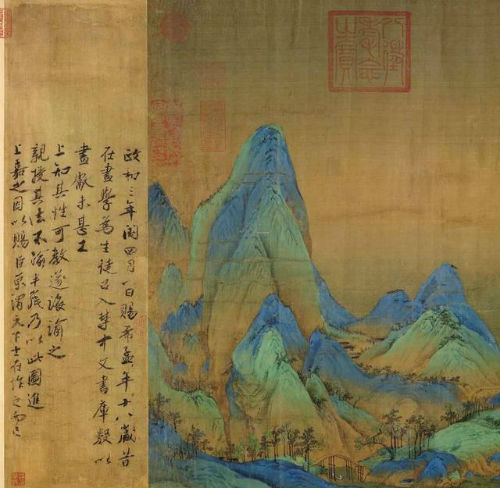 八徵耄念之寶
政和三年閏四月一日賜希孟年十八歲昔
在畫學為生徒召入禁中文書庫數以
畫獻未甚工
上知其性可教遂誨諭之
親授其法不踰半歲乃以此圖進
上嘉之因以賜臣京謂天下士在作之而已